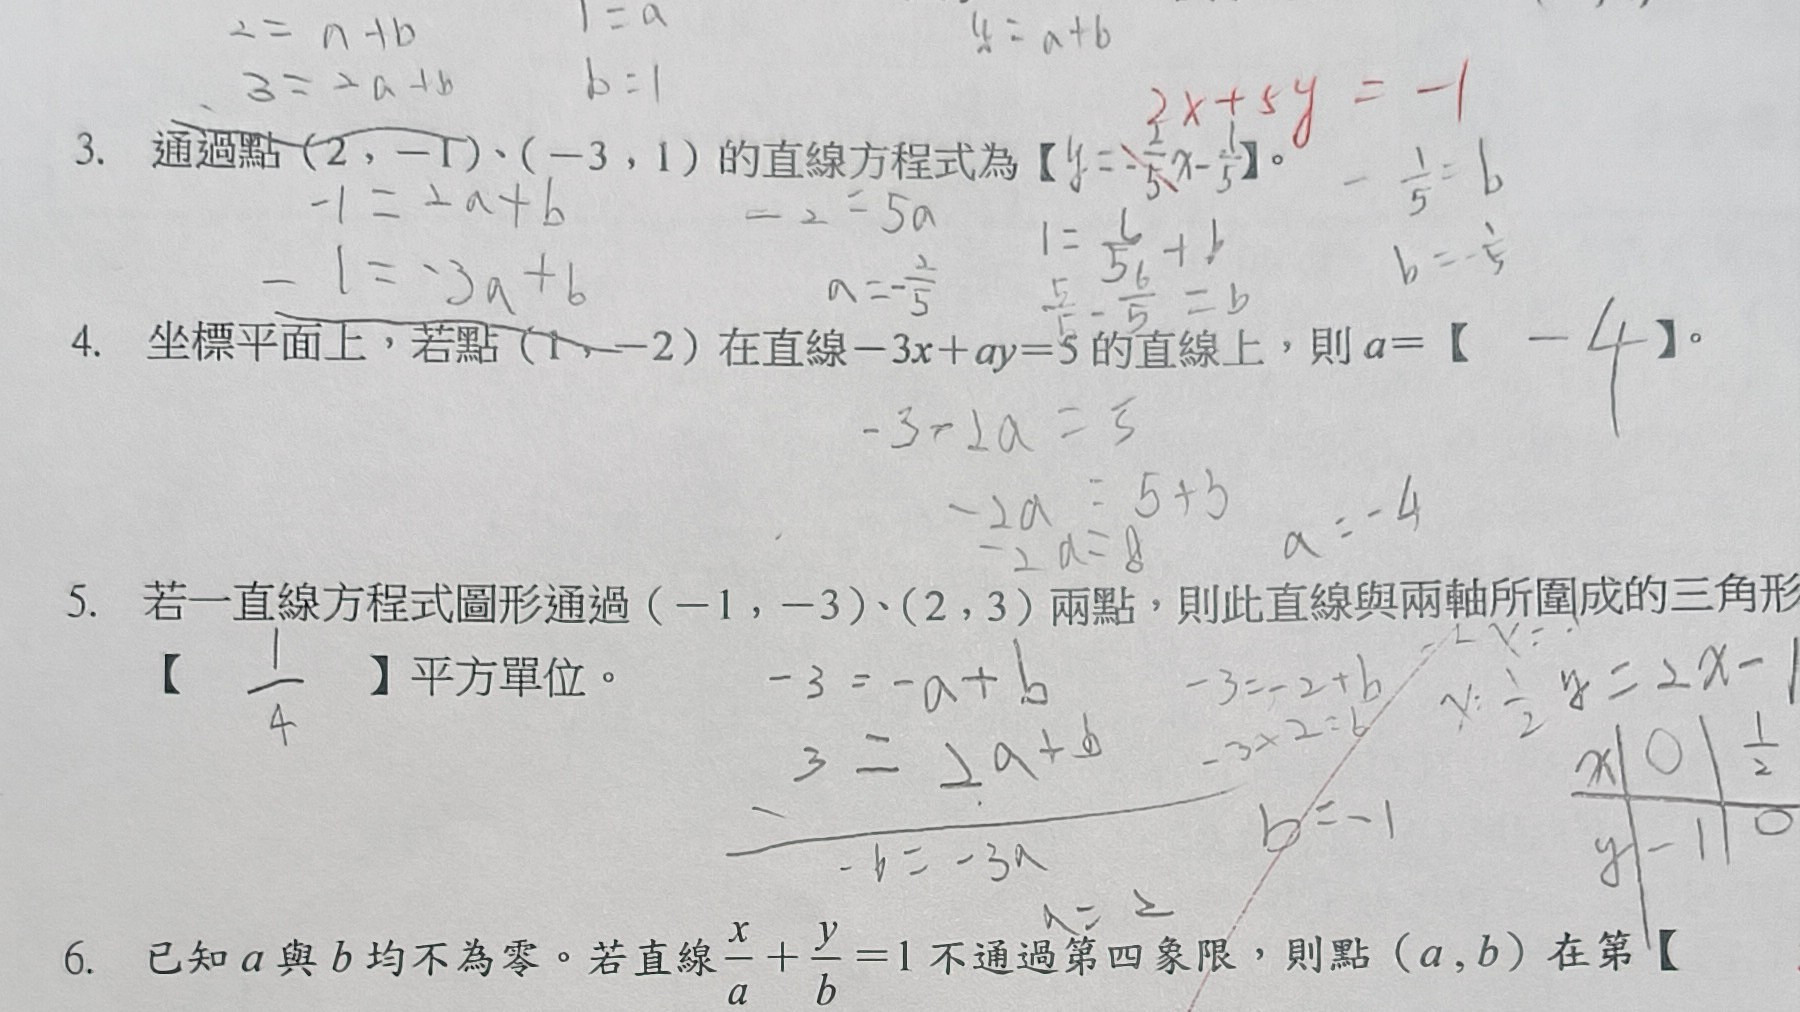 2 = a + b
1 = a
4 = a + b
3 = 2a + b
b = 1
2x + 5y = -1
3. 通過點（2，－1）、（－3，1）的直線方程式為【y = -2/5 x - 1/5】。
-1 = 2a + b
-2 = 5a
-1/5 = b
1 = 6/5 + b
- 1 = -3a + b
a = -2/5
5/5 - 6/5 = b
b = -1/5
4. 坐標平面上，若點（1，－2）在直線－3x＋ay＝5 的直線上，則 a＝【 -4 】。
-3 - 2a = 5
-2a = 5 + 3
-2a = 8
a = -4
5. 若一直線方程式圖形通過（－1，－3）、（2，3）兩點，則此直線與兩軸所圍成的三角形
【 1/4 】平方單位。
-3 = -a + b
-3 = -2 + b
x = 1/2
y = 2x - 1
3 = 2a + b
-3 + 2 = b
x 0 1/2
y -1 0
b = -1
-6 = -3a
a = 2
6. 已知 a 與 b 均不為零。若直線 x/a + y/b ＝1 不通過第四象限，則點（a , b）在第【